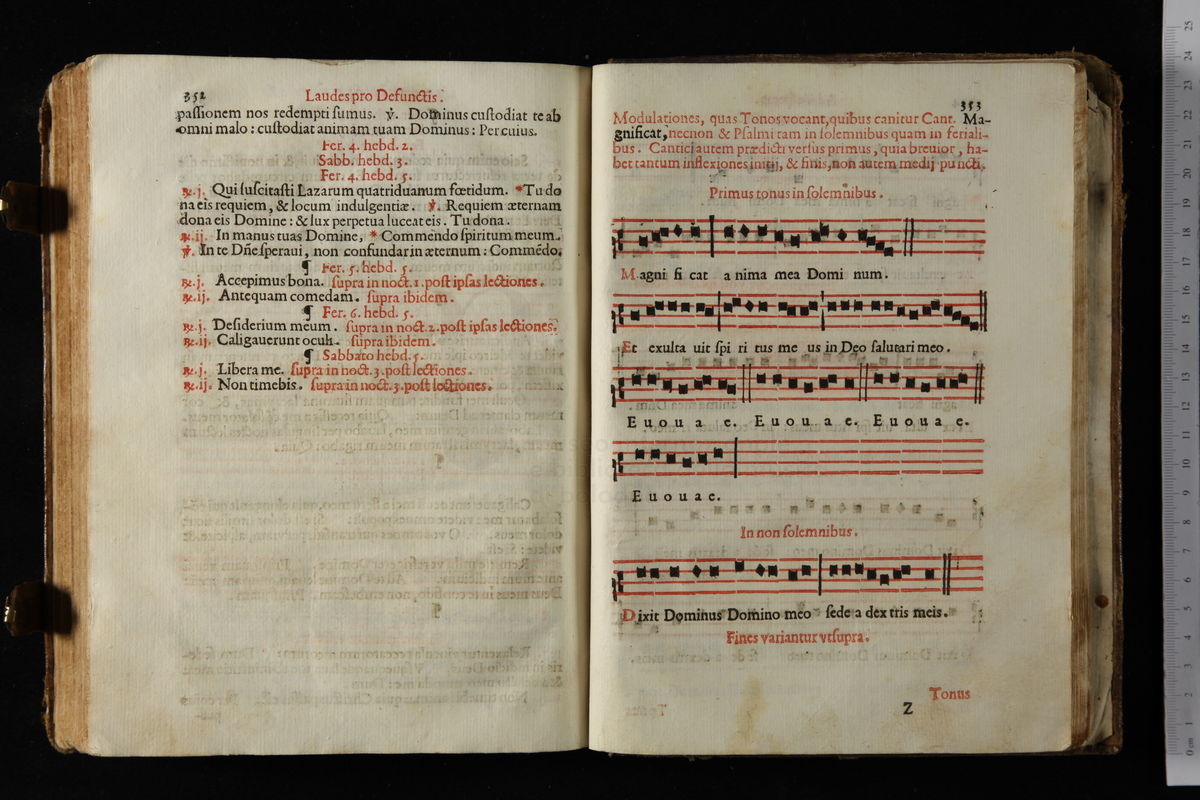 352
Laudes pro Defunctis.
passionem nos redempti sumus. ℣. Dominus custodiat te ab
omni malo: custodiat animam tuam Dominus: Per cuius.
Fer. 4. hebd. 2.
Sabb. hebd. 3.
Fer. 4. hebd. 5.
℟. j. Qui suscitasti Lazarum quatriduanum fœtidum. *Tu do
na eis requiem, & locum indulgentiæ. ℣. Requiem æternam
dona eis Domine: & lux perpetua luceat eis. Tu dona.
℟. ij. In manus tuas Domine, * Commendo spiritum meum.
℣. In te Dñe speraui, non confundar in æternum: Commẽdo.
¶ Fer. 5. hebd. 5.
℟. j. Accepimus bona. supra in noct. 1. post ipsas lectiones.
℟. ij. Antequam comedam. supra ibidem.
¶ Fer. 6. hebd. 5.
℟. j. Desiderium meum. supra in noct. 2. post ipsas lectiones.
℟. ij. Caligauerunt oculi. supra ibidem.
¶ Sabbato hebd. 5.
℟. j. Libera me. supra in noct. 3. post lectiones.
℟. ij. Non timebis. supra in noct. 3. post lectiones.
353
Modulationes, quas Tonos vocant, quibus canitur Cant. Ma-
gnificat, necnon & Psalmi tam in solemnibus quam in feriali-
bus. Cantici autem prædicti versus primus, quia breuior, ha-
bet tantum inflexiones initij, & finis, non autem medij puncti.
Primus tonus in solemnibus.
Magni fi cat a nima mea Domi num.
Et exulta uit spi ri tus me us in Deo salutari meo.
E u o u a e. E u o u a e. E u o u a e.
E u o u a e.
In non solemnibus.
Dixit Dominus Domino meo sede a dex tris meis.
Fines variantur vt supra.
Tonus
Z